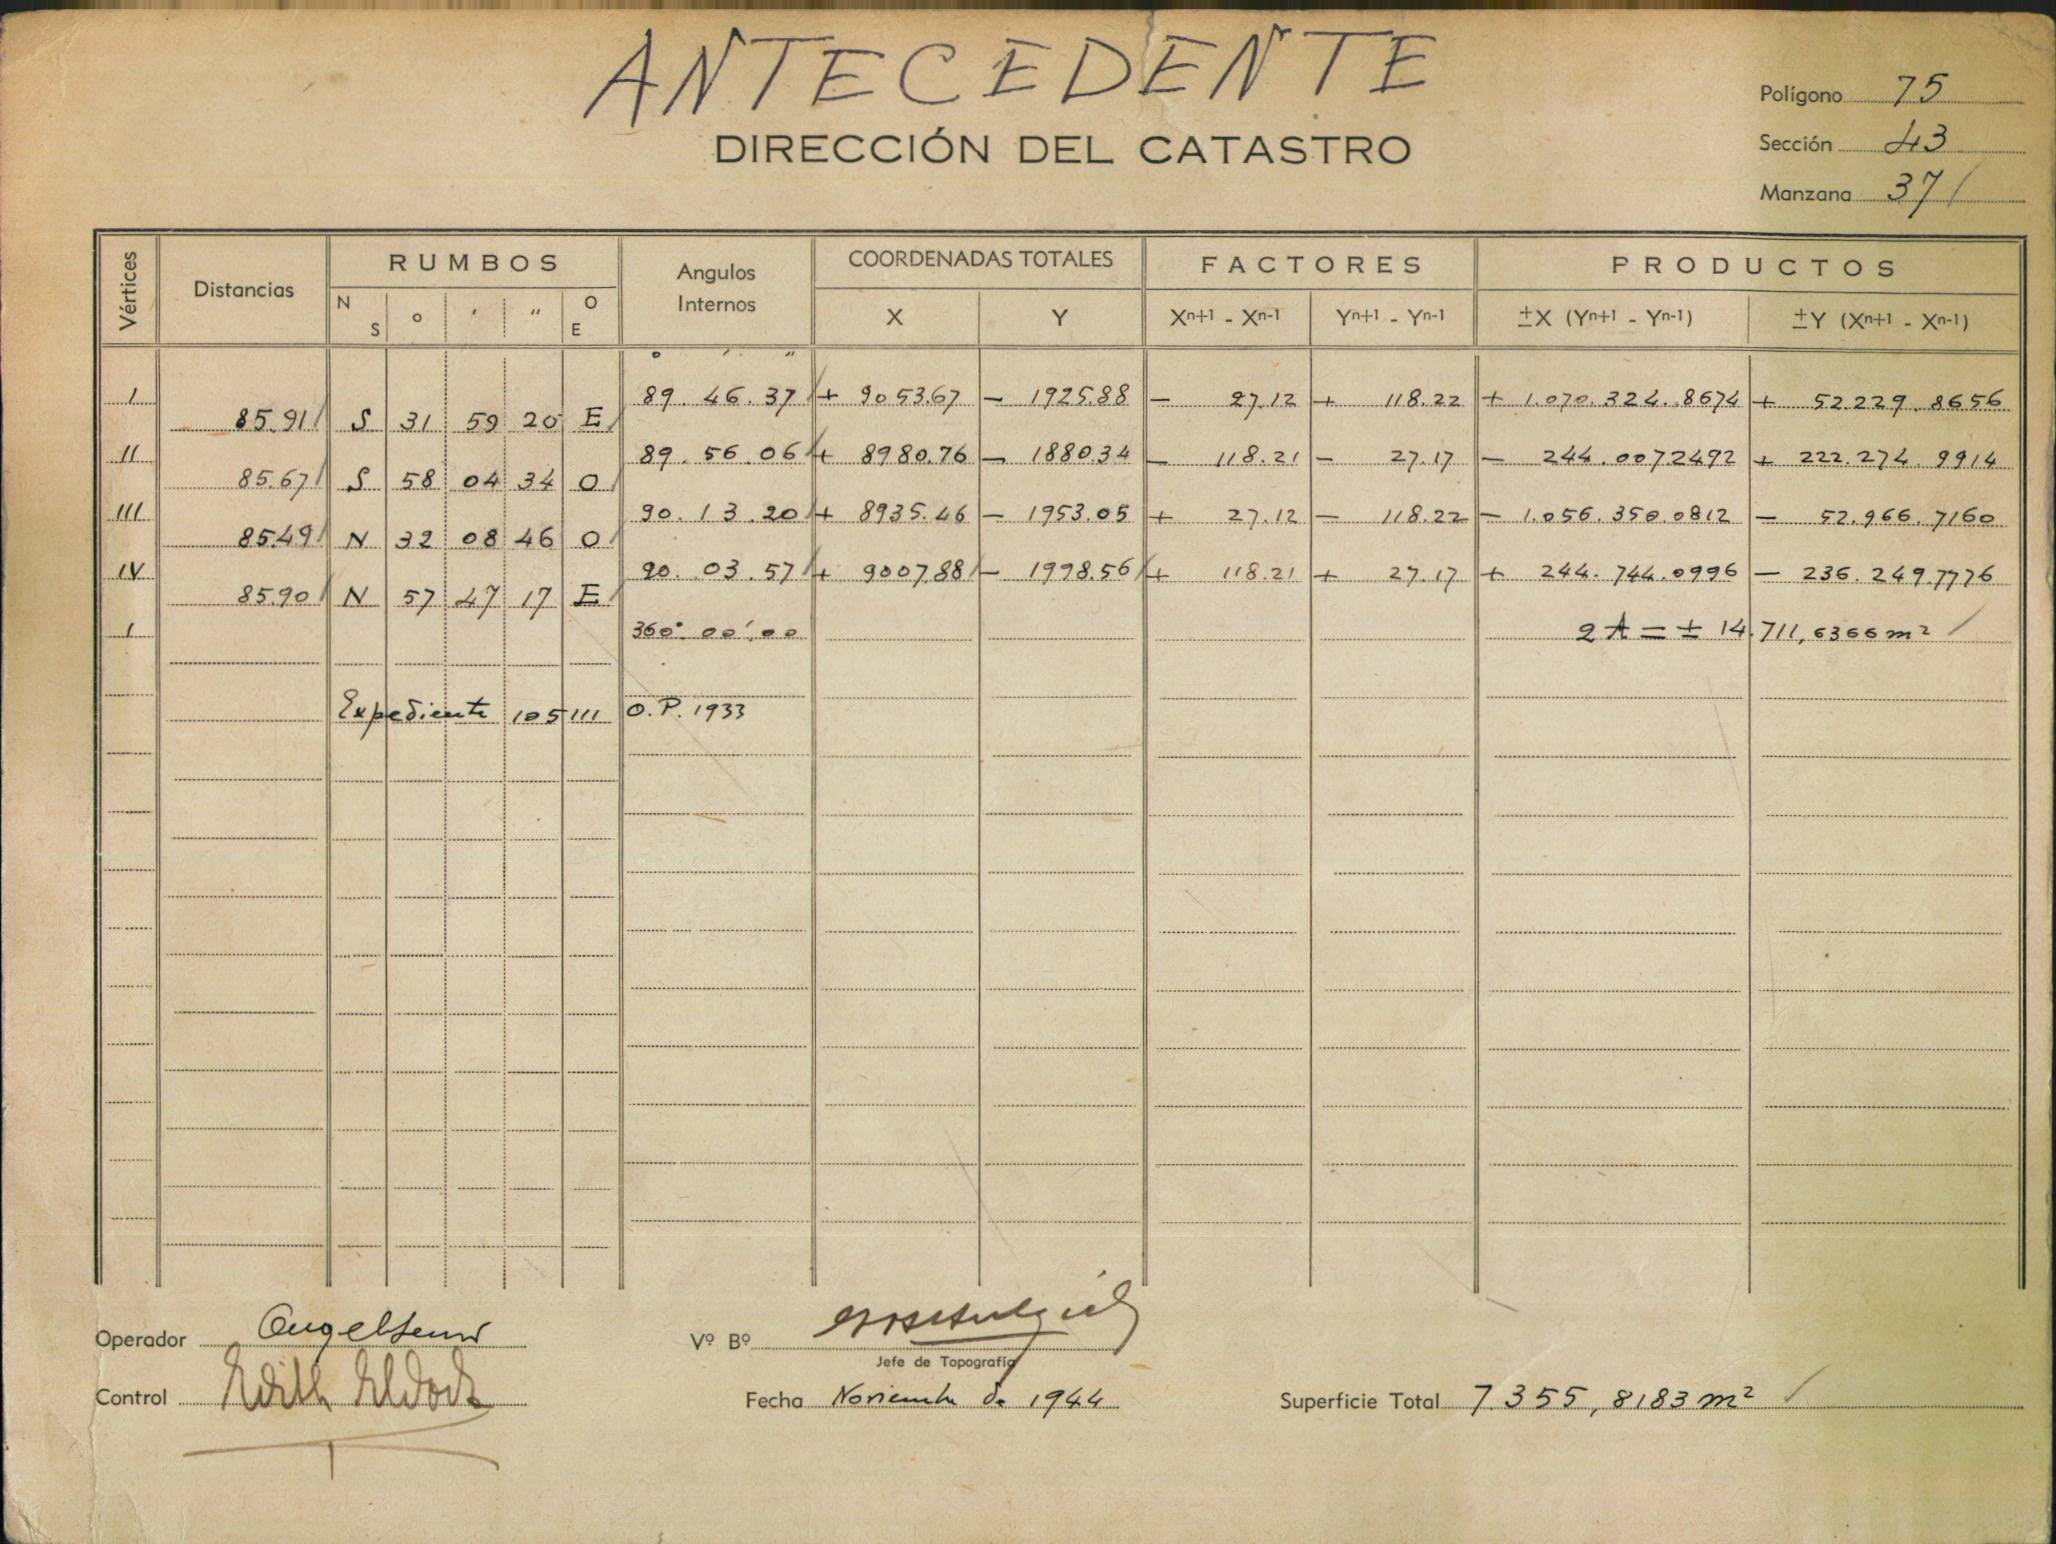 ANTECEDENTE
DIRECCIÓN DEL CATASTRO
Polígono 75
Sección 43
Manzana 37
Vértices Distancias RUMBOS Angulos Internos COORDENADAS TOTALES FACTORES PRODUCTOS
N S o ' " O E X Y Xn+1 - Xn-1 Yn+1 - Yn-1 ±X (Yn+1 - Yn-1) ±Y (Xn+1 - Xn-1)
o ' "
I 89. 46. 37 + 9053.67 - 1925.88 - 27.12 + 118.22 + 1.070.324.8674 + 52.229.8656
85.91 S 31 59 20 E
II 89. 56 06 + 8980.76 - 1880.34 - 118.21 - 27.17 - 244.0072492 + 222.274.9914
85.67 S 58 04 34 O
III 90. 13.20 + 8935.46 - 1953.05 + 27.12 - 118.22 - 1.056.350.0812 - 52.966.7160
85.49 N 32 08 46 O
IV 90. 03.57 + 9007.88 - 1998.56 + 118.21 + 27.17 + 244.744.0996 - 236.249.7776
85.90 N 57 47 17 E
I 360°.00'.00 2A = ± 14.711,6366 m²
Expediente 105111 O.P. 1933
Operador
Vº Bº
Jefe de Topografía
Control Edith
Fecha Noviembre de 1944
Superficie Total 7.355,8183 m²